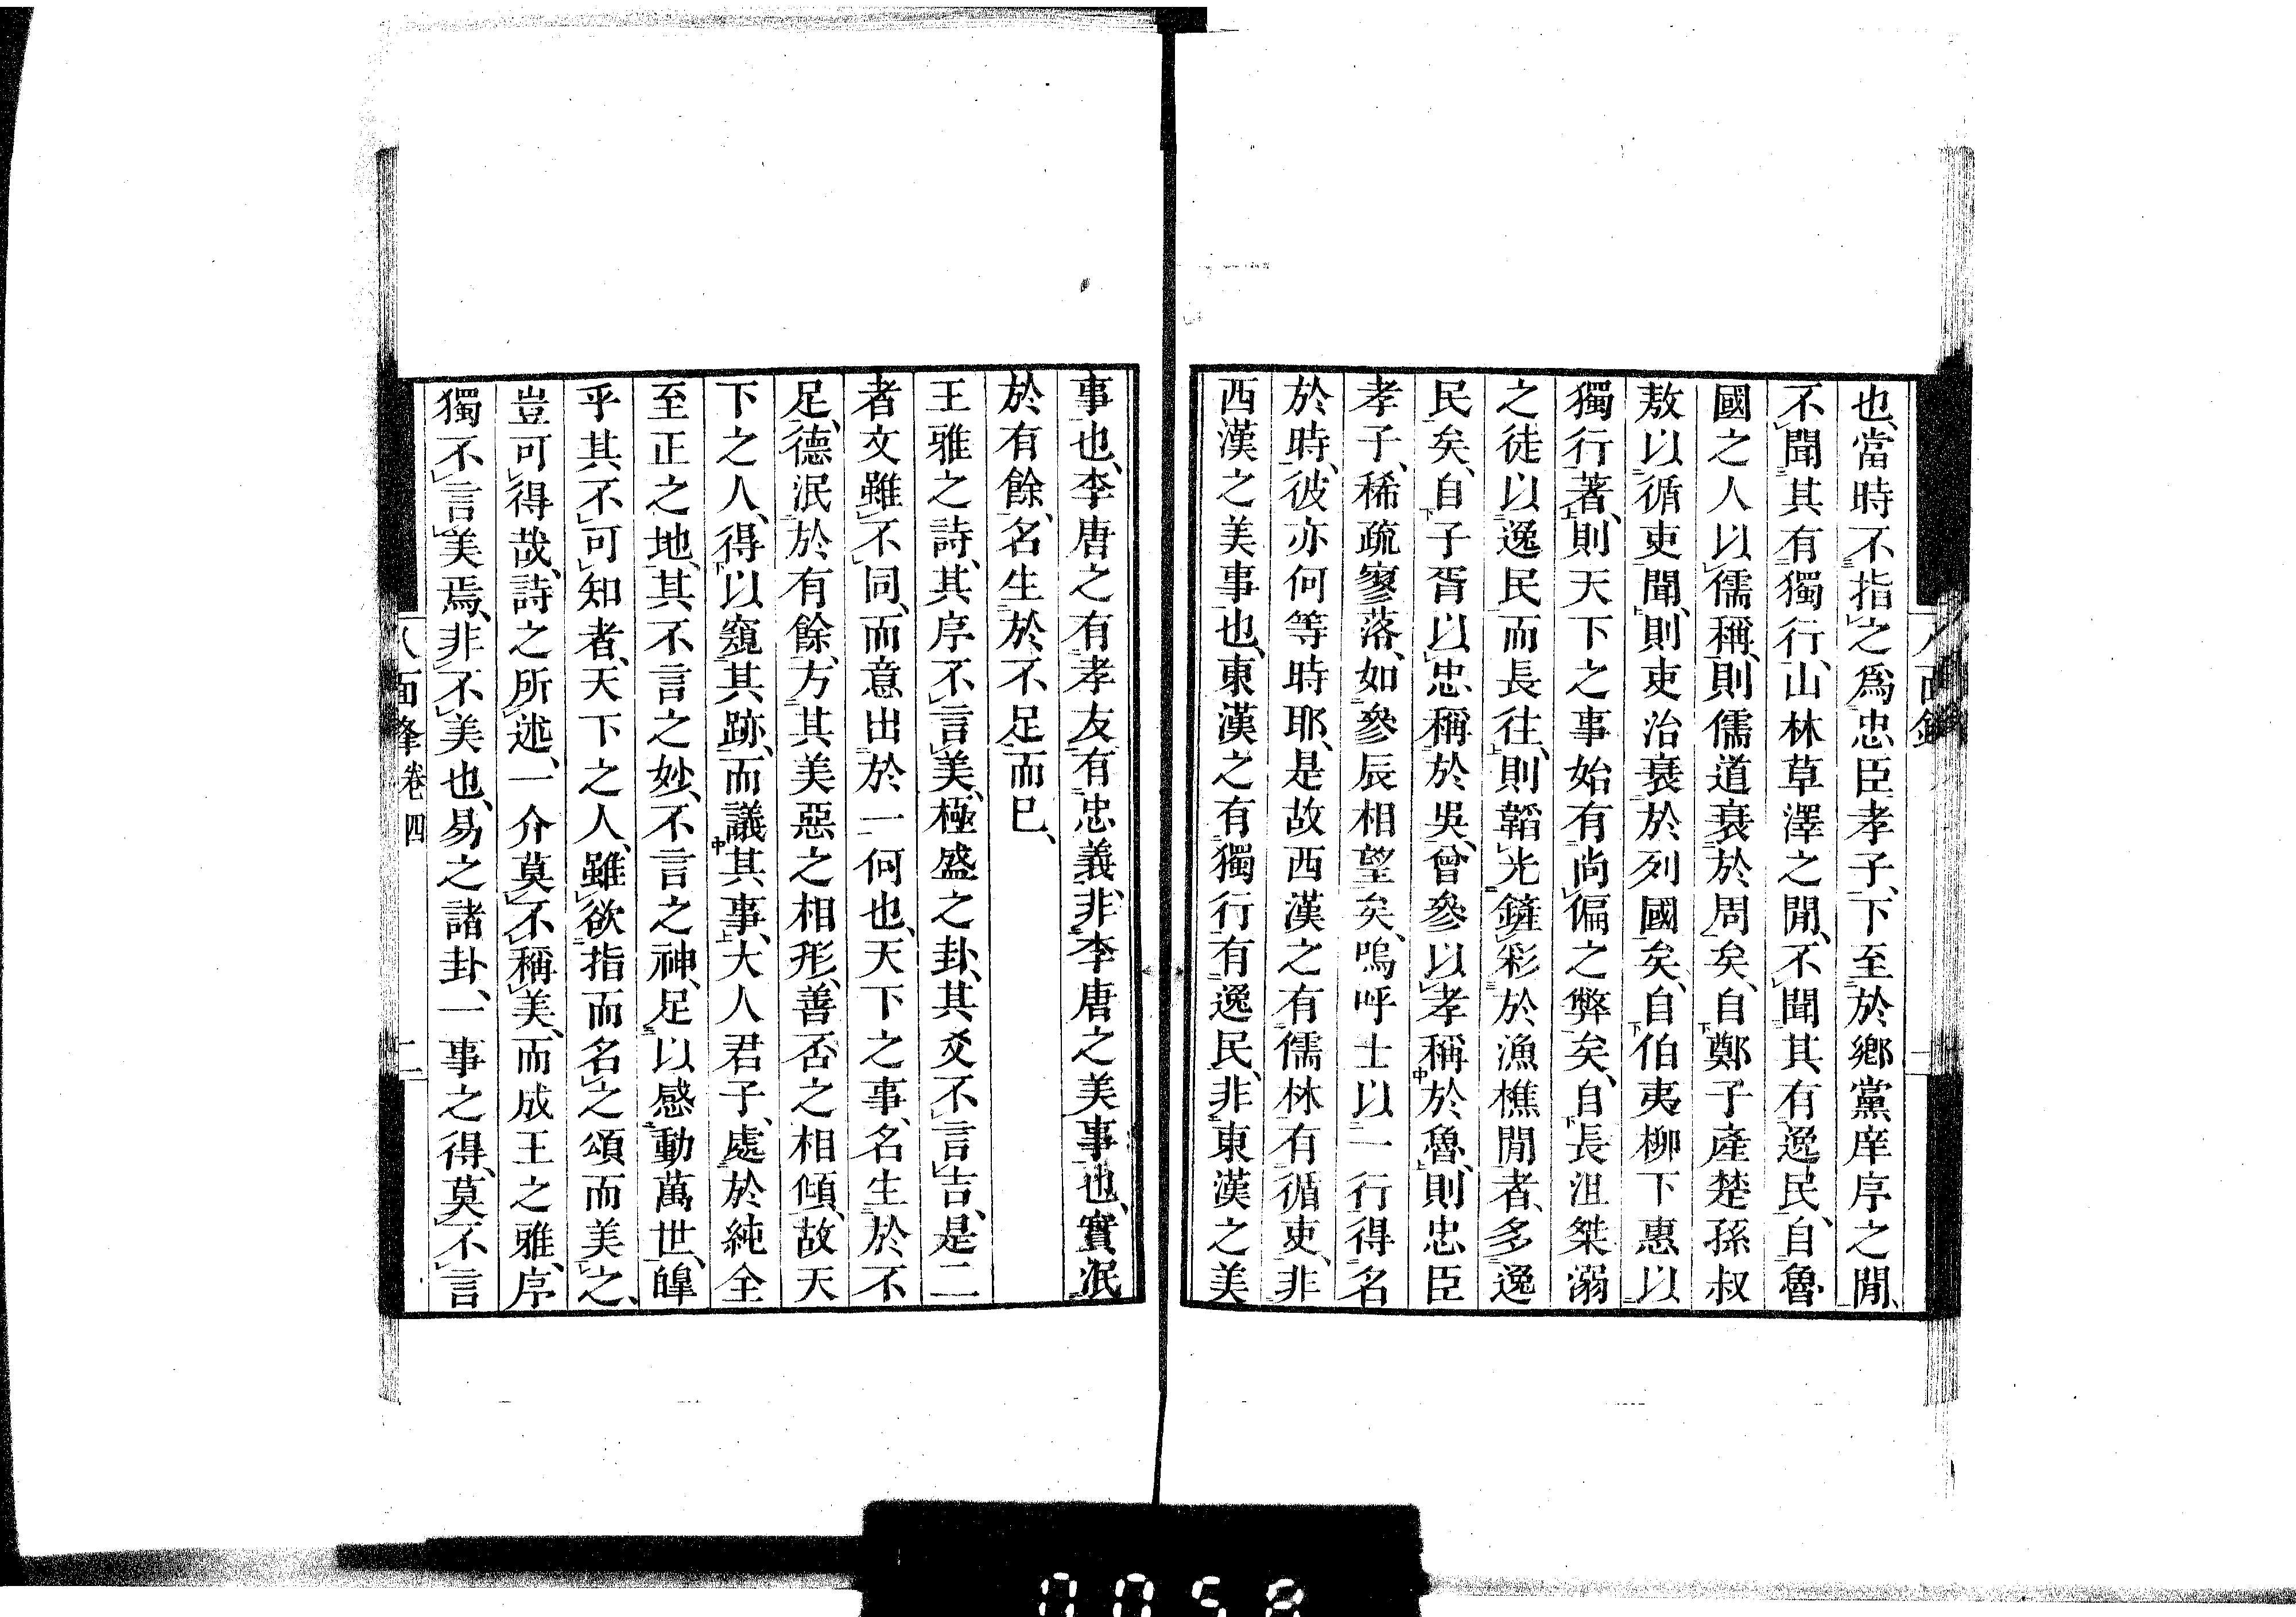 也、當時不指之爲忠臣孝子、下至於鄕黨庠序之閒、
不聞其有獨行、山林草澤之閒、不聞其有逸民、自魯
國之人以儒稱、則儒道衰於周矣、自鄭子產楚孫叔
敖以循吏聞、則吏治衰於列國矣、自伯夷柳下惠以
獨行著、則天下之事始有尚偏之弊矣、自長沮桀溺
之徒以逸民而長往、則韜光鏟彩於漁樵閒者、多逸
民矣、自子胥以忠稱於吳、曾參以孝稱於魯、則忠臣
孝子、稀疏寥落、如參辰相望矣、嗚呼士以一行得名
於時、彼亦何等時耶、是故西漢之有儒林有循吏、非
西漢之美事也、東漢之有獨行有逸民、非東漢之美
事也、李唐之有孝友有忠義、非李唐之美事也、實泯
於有餘、名生於不足而已、
王雅之詩、其序不言美、極盛之卦、其爻不言吉、是二
者文雖不同、而意出於一何也、天下之事、名生於不
足、德泯於有餘、方其美惡之相形、善否之相傾、故天
下之人、得以窺其跡、而議其事、大人君子、處於純全
至正之地、其不言之妙、不言之神、足以感動萬世、皥
乎其不可知者、天下之人、雖欲指而名之頌而美之、
豈可得哉、詩之所述、一介莫不稱美、而成王之雅、序
獨不言美焉、非不美也、易之諸卦、一事之得、莫不言
八面鋒 卷四 二
0058